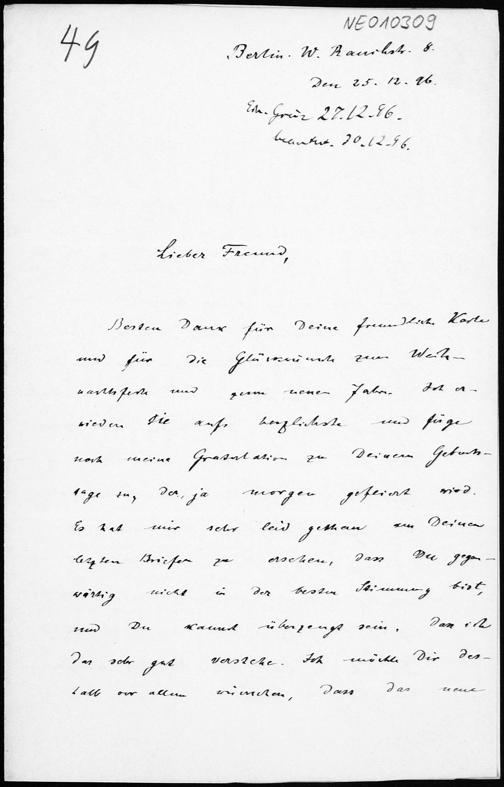 NE010309
49
Berlin. W. Rauchstr. 8.
Den 25. 12. 96.
Graz 27.12.96.
beantw. 30.12.96.
Lieber Freund,
Besten Dank für Deine freundliche Karte
und für die Glückwünsche zum Weih-
nachtsfeste und zum neuen Jahre. Ich er-
wiedere Sie aufs herzlichste und füge
noch meine Gratulation zu Deinem Geburts-
tage zu, der, ja morgen gefeiert wird.
Es hat mir sehr leid gethan aus Deinen
letzten Briefen zu ersehen, dass Du gegen-
wärtig nicht in der besten Stimmung bist,
und Du kannst überzeugt sein, dass ich
das sehr gut verstehe. Ich möchte Dir des-
halb vor allem wünschen, dass das neue